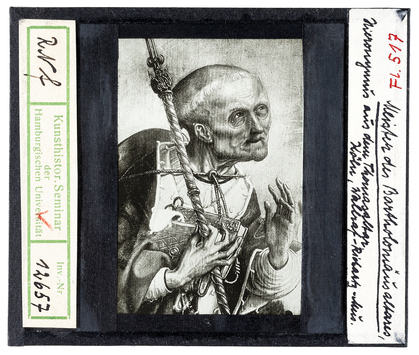 Kunsthistor. Seminar
der
Hamburgischen Universität
Inv.-Nr.
12657
517
Meister des Bartholomäusaltares,
Hieronymus aus dem Thomasaltar
Köln, Wallraf-Richartz-Mus.